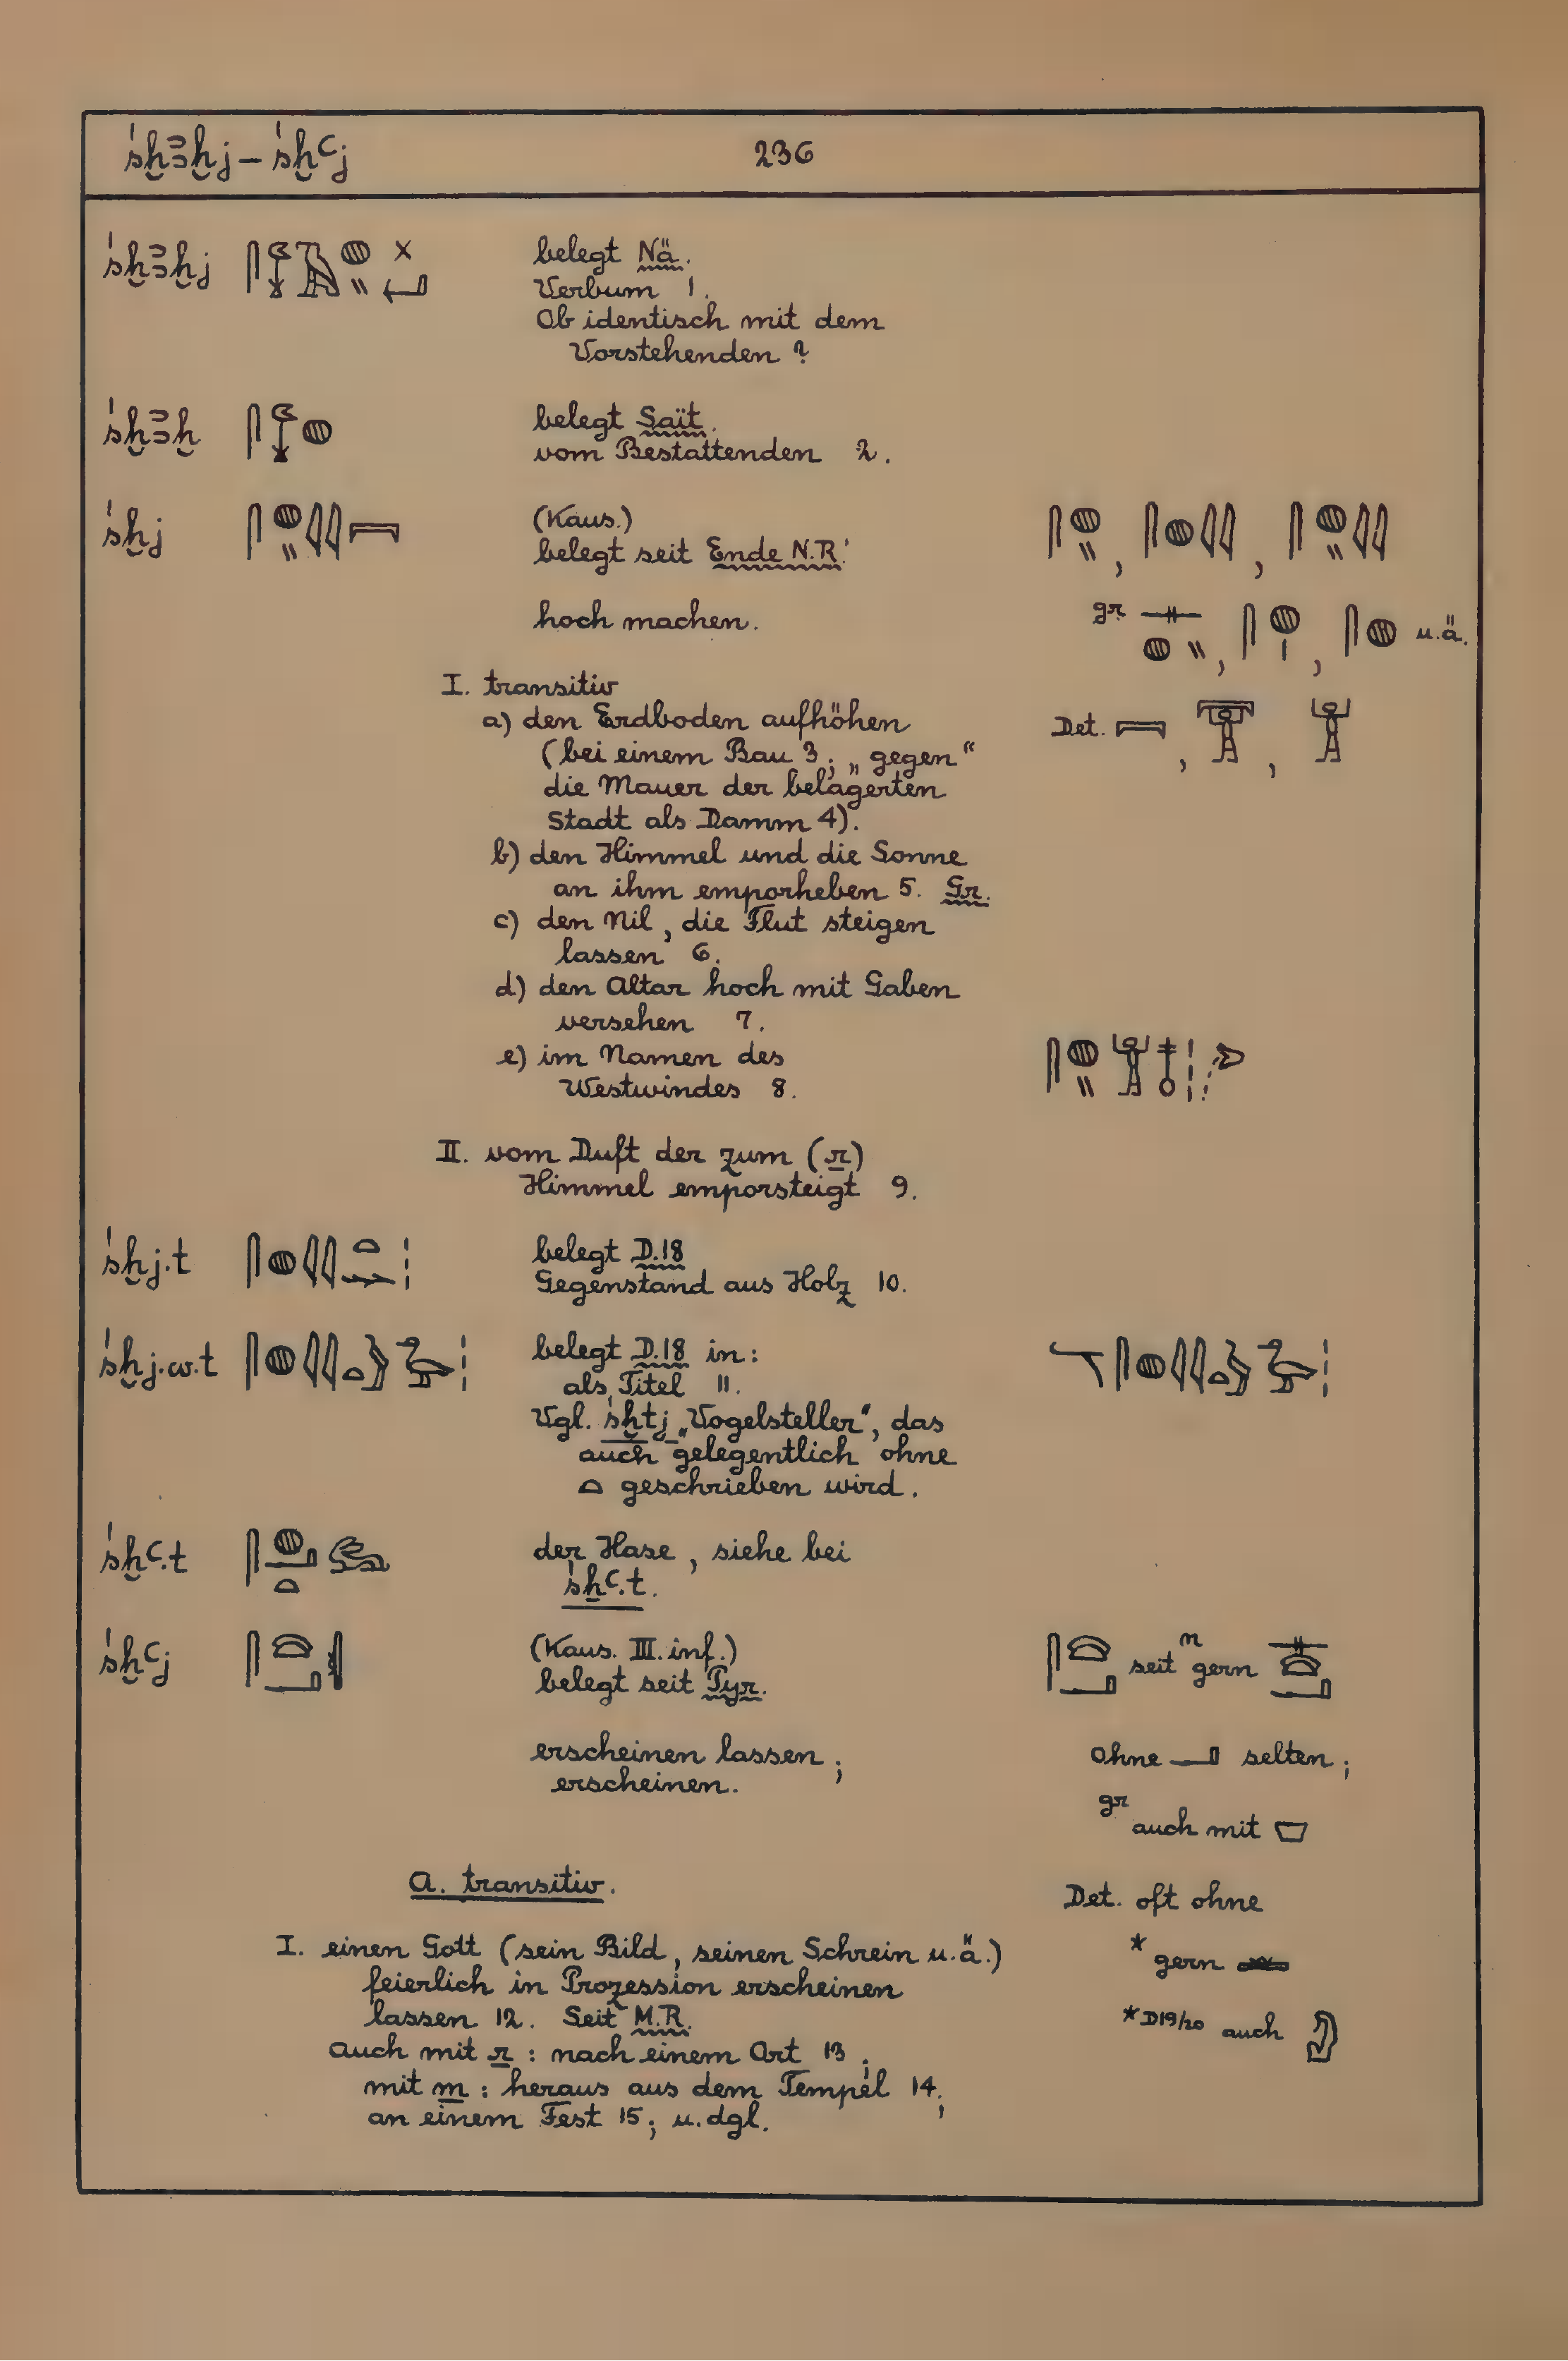 śḫꜣḫj – śḫꜥj 236
śḫꜣḫj belegt Nä.
Verbum 1.
Ob identisch mit dem
Vorstehenden ?
śḫꜣḫ belegt Saït.
vom Bestattenden 2.
śḫj (Kaus.)
belegt seit Ende N.R.
hoch machen.
gr. u.ä.
I. transitiv
a) den Erdboden aufhöhen
(bei einem Bau 3; „gegen“
die Mauer der belagerten
Stadt als Damm 4).
Det.
b) den Himmel und die Sonne
an ihm emporheben 5. Gr.
c) den Nil, die Flut steigen
lassen 6.
d) den Altar hoch mit Gaben
versehen 7.
e) im Namen des
Westwindes 8.
II. vom Duft der zum (r)
Himmel emporsteigt 9.
śḫj.t belegt D.18
Gegenstand aus Holz 10.
śḫj.w.t belegt D.18 in:
als Titel 11.
Vgl. śḫtj „Vogelsteller“, das
auch gelegentlich ohne
𓏏 geschrieben wird.
śḫꜥ.t der Hase, siehe bei
śẖꜥ.t.
śḫꜥj (Kaus. III. inf.)
belegt seit Pyr.
seit n gern
erscheinen lassen;
erscheinen.
ohne 𓂝 selten;
gr auch mit
A. transitiv.
Det. oft ohne
I. einen Gott (sein Bild, seinen Schrein u.ä.)
feierlich in Prozession erscheinen
lassen 12. Seit M.R.
auch mit r : nach einem Ort 13;
mit m : heraus aus dem Tempel 14;
an einem Fest 15; u.dgl.
* gern 𓏛
* D19/20 auch